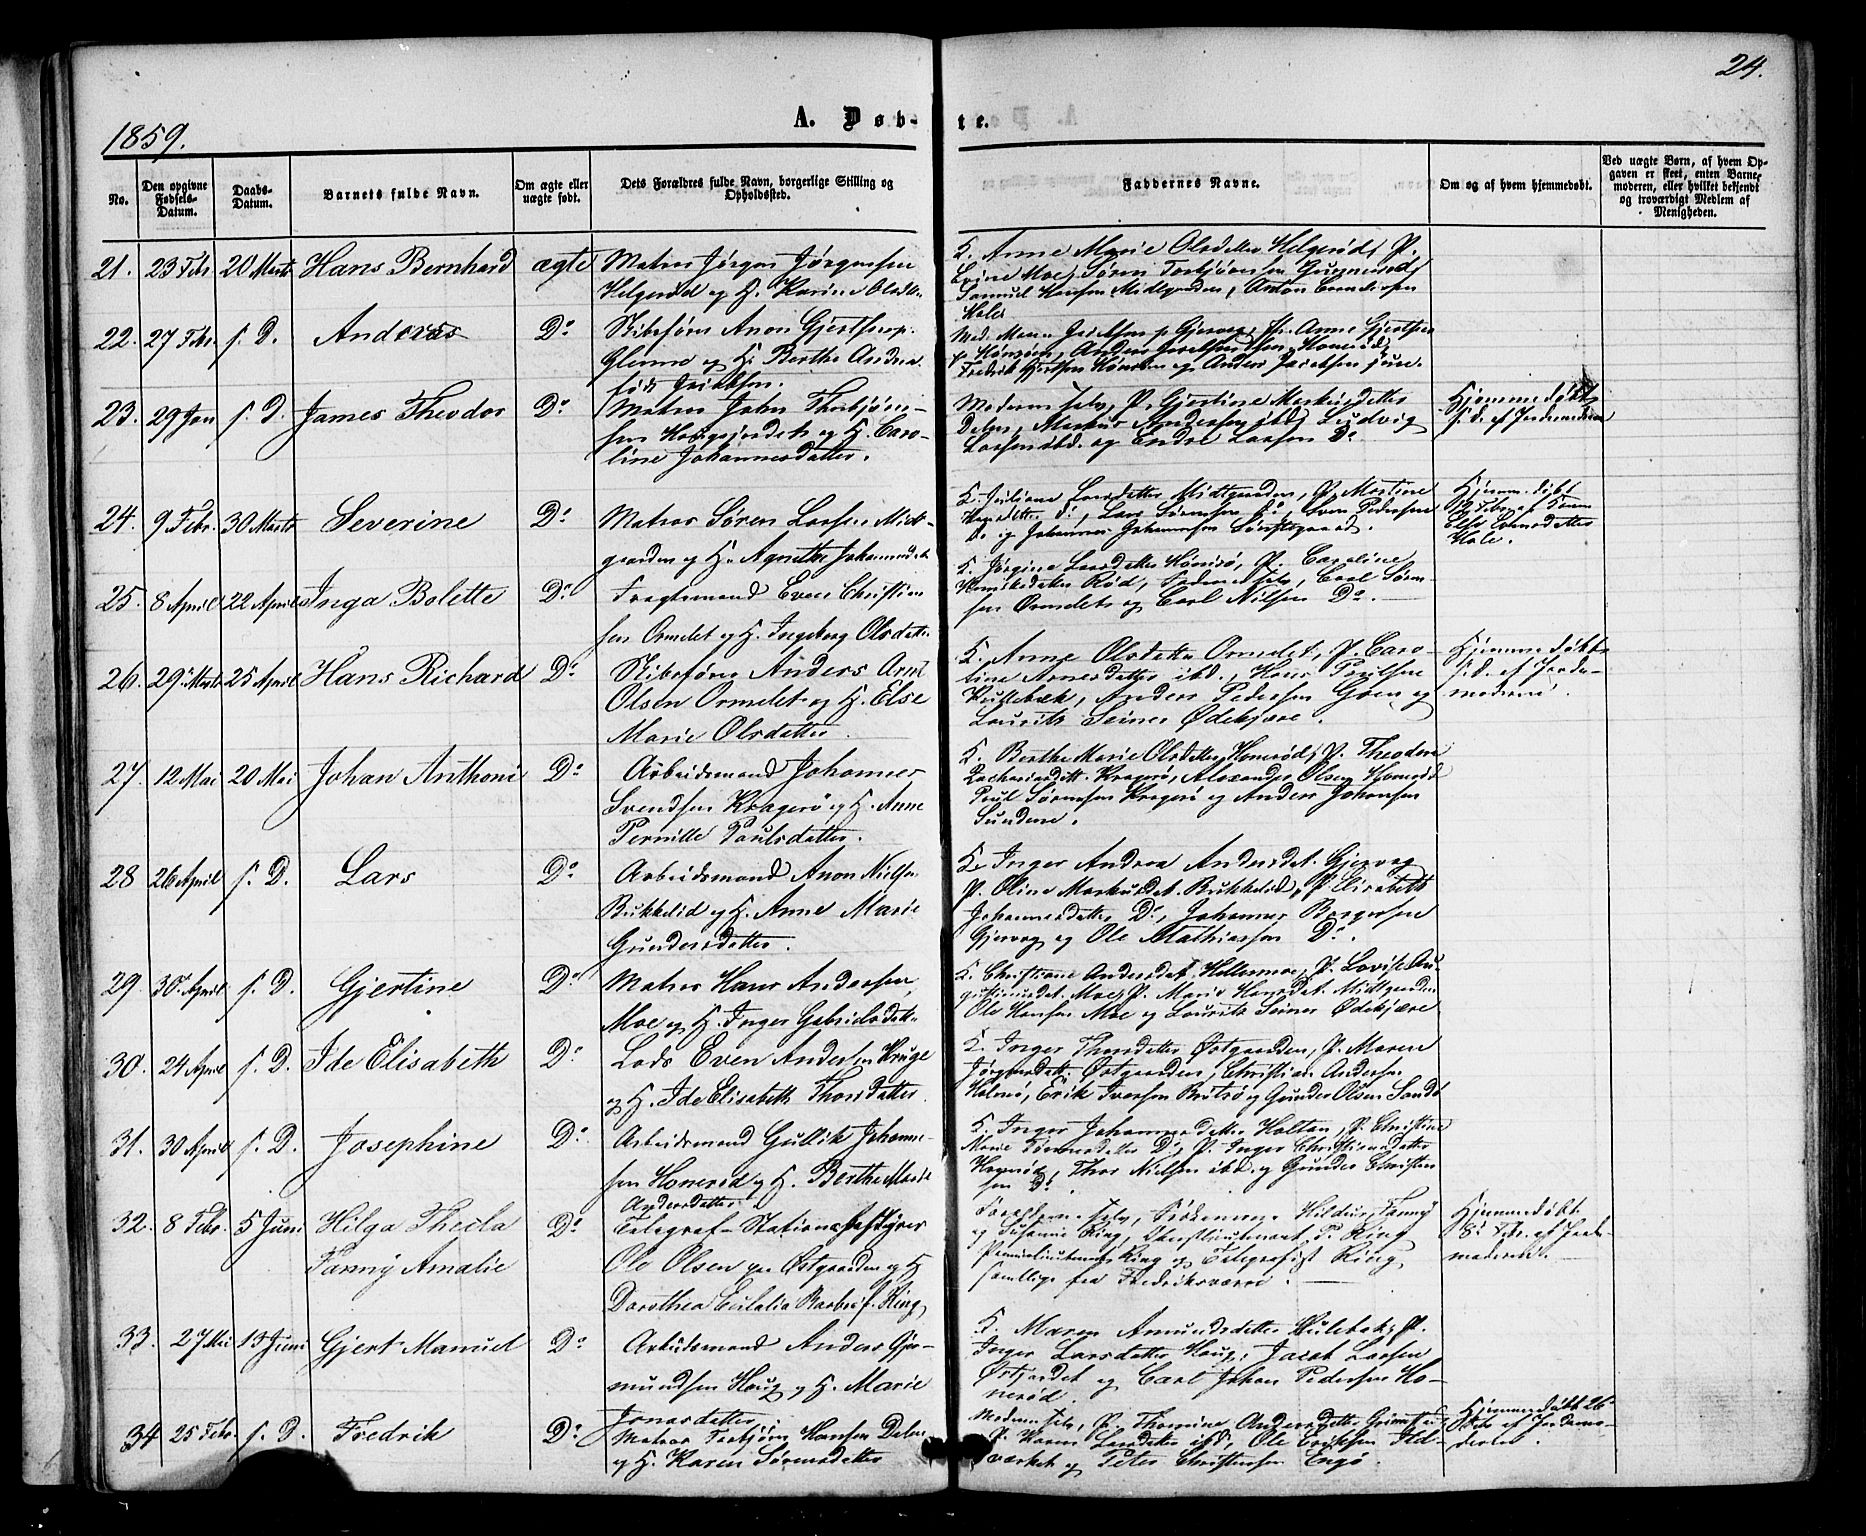 24.
1859.
A. Døb-te.
No.
Den opgivne Fødsels-Datum.
Daabs-Datum.
Barnets fulde Navn.
Om ægte eller uægte født.
Dets Forældres fulde Navn, borgerlige Stilling og Opholdssted.
Faddernes Navne.
Om og af hvem hjemmedøbt.
Ved uægte Børn, af hvem Opgaven er skeet, enten Barnemoderen, eller hvilket bekjendt og troværdigt Medlem af Menigheden.
21. 23 Febr. 20 Marts Hans Bernhard ægte
Matros Jørgen Jørgensen
Helgerød og H. Karine Olsdtr.
K. Anne Marie Olsdatter Helgerød, P.
Moe, Søren Torbjørnsen Gunnerød,
Samuel Hansen Midtgaarden, Anton
22. 27 Febr. s. D. Andreas Do
Skibsfører Anon Gjertsen
Glenne og H. Berthe Andrea
født Jacobsen.
Anne Gjertsen
Fredrik Gjertsen og Anders Jacobsen junr.
23. 29 Jan s. D. James Theodor Do
Matros John Torbjørn-
sen Haugsjordet og H. Caro-
line Johannesdatter.
Moderen selv, P. Gjertine Markusdatter
Dalen, Markus Andersen ibd, Ludvig
Larsen ibd. og Endre Larsen Do
Hjemmedøbt
s. D. af Jordemoderen
24. 9 Febr. 30 Marts Severine Do
Matros Søren Larsen Midt-
gaarden og H. Agnethe Johannesdatter
K. Juliane Larsdatter Midtgaarden, P. Martine
Hansdatter Do, Lars Sørensen Do, Sven Pedersen
Do og Johannes Johannesen
Hjemmedøbt
25. 8 April 22 April Inga Bolette Do
Fragtemand Even Christian
sen Ormelet og H. Ingeborg Olsdatter
K. Jørgine Larsdatter, P. Caroline
Henriksdatter Rød, Faderen selv, Carl Søren-
sen Ormelet og Carl Nilsen Do.
26. 29 Marts 25 April Hans Richard Do
Skibsfører Anders Arnt
Olsen Ormelet og H. Else
Marie Olsdatter
K. Anne Olsdatter Ormelet, P. Caro-
line Arnesdatter ibd., Hans Poulsen
Kullebæk, Anders Pedersen Goen og
Lauritz Seiner Ødekjære.
Hjemmedøbt
s. D. af Jorde-
moderen.
27. 12 Mai 20 Mai Johan Anthoni Do
Arbeidsmand Johannes
Svendsen Kragerø og H. Anne
Pernille Paulsdatter.
K. Berthe Marie Olsdatter Honerød, P. Theodora
Zachariasdatt. Kragerø, Alexander Olsen Honerød
Poul Sørensen Kragerø og Anders Johansen
Sundene.
28 26 April s. D. Lars Do
Arbeidsmand Anon Nielsen
Bukkelid og H. Anne Marie
Gundersdatter.
K. Inger Andrea Andersdat. Gjervog
P. Oline Markusdat. Bukkelid, P. Elisabeth
Johannesdatter Do, Johannes Borgersen
Gjervog og Ole Mathiassen Do.
29. 30 April s. D. Gjertine Do
Matros Hans Andersen
Moe og H. Inger Gabrielsdatt.
K. Christiane Andersdat. Hellermoe, P. Lovise Au-
gustinusdat. Moe, P. Marie Hansdat. Midtgaarden
Ole Hansen Moe og Lauritz Seiner Ødekjære
30. 24 April s. D. Ide Elisabeth Do
Lods Even Andersen Kruge
og H. Ide Elisabeth Thorsdatter.
K. Inger Thorsdatter Østgaarden, P. Maren
Jørgensdatt. Østgaarden, Christian Andersen
Holmø, Erik Iversen Brøtsø og Gunder Olsen Sandø
31. 30 April s. D. Josephine Do
Arbeidsmand Gullik Johanne-
sen Honerød og H. Berthe Marie
Andersdatter
K. Inger Johannesdatter Holtan, P. Christine
Marie Do, P. Inger Christiansdatter
Honerød, Thor Nielsen ibd. og Gunder Christen
sen Do.
32. 8 Febr. 5 Juni Hilga Thecla
Fanny Amalie Do
Telegraf-Stationsbestyrer
Ole Olsen paa Østgaarden og H
Dorothea Eulalia Barbra f. Ring
Forældrene selv, Frøknerne Hildur, Fanny
og Susanne Ring, P. Ring
Premierlieutenant Ring og Telegrafist Ring,
samtlige fra Fredriksværn.
Hjemmedøbt
8 Febr. af Jorde-
moderen.
33. 27 Mai 13 Juni Gjert Manuel Do
Arbeidsmand Anders Gjer-
mundsen Haug og H. Marie
Jonasdatter
K. Maren Amundsdatter Kulebæk, P.
Inger Larsdatter Haug, Jacob Larsen
Østjordet og Carl Johan Pedersen Ho-
nerød.
34 25 Febr. s. D. Fredrik Do
Matros Torbjørn Hansen Dalen
og H. Karen Sørensdatter
Moderen selv, P. Thomine Andersdatter
P. Karen Larsdatter ibd, Ole Eriksen
og Peter Christensen Engø.
Hjemmedøbt 26
Febr. af Jordemo-
deren.